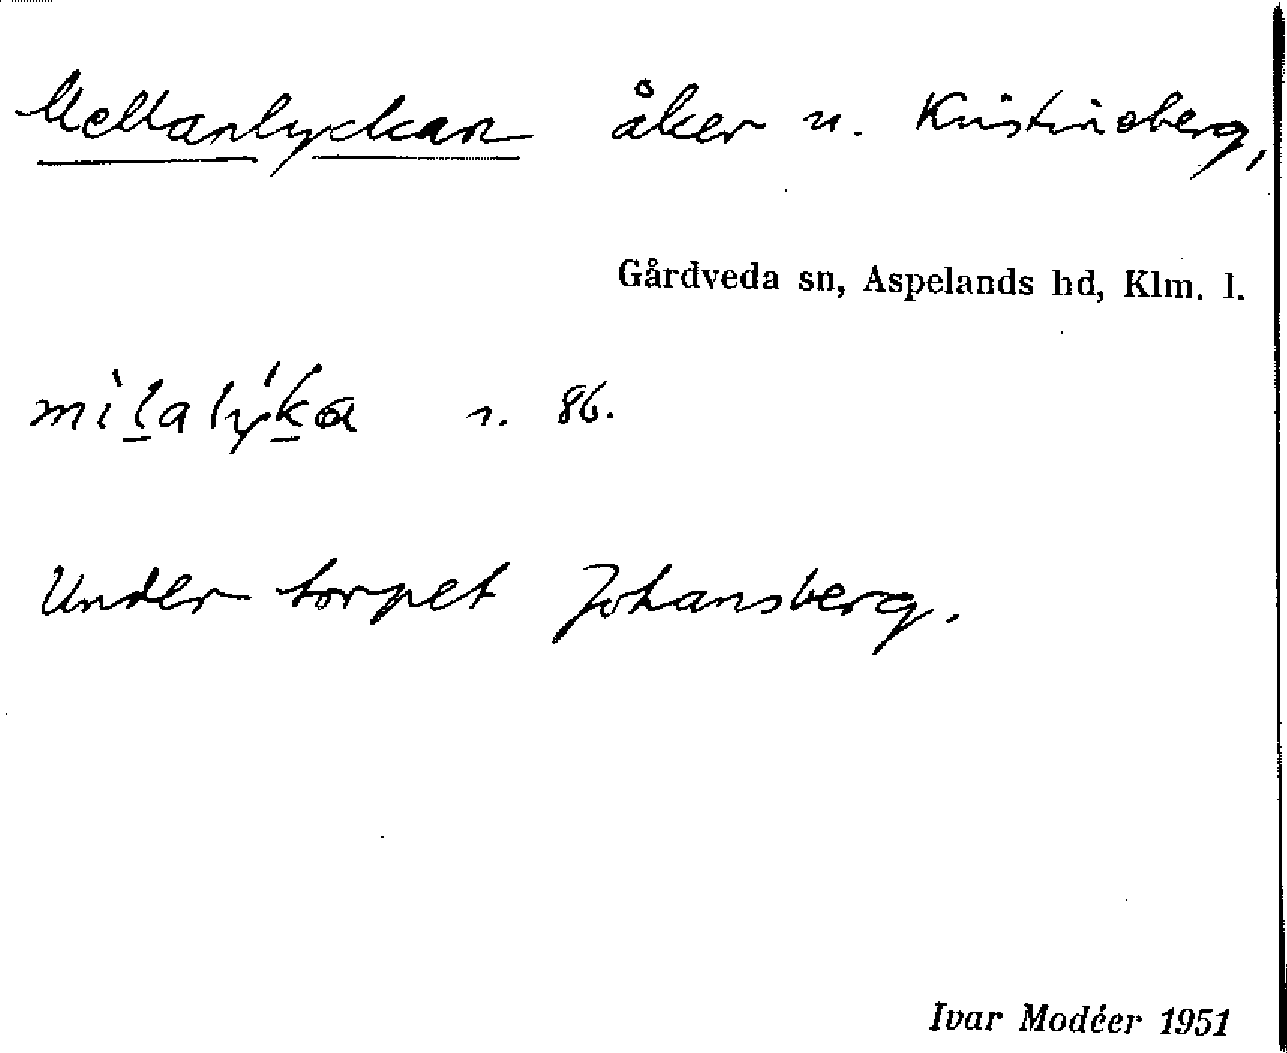 Mellanlyckan åker u. Kristineberg,
Gårdveda sn, Aspelands hd, Klm. l.
mìlalýka s. 86.
Under torpet Johansberg.
Ivar Modéer 1951